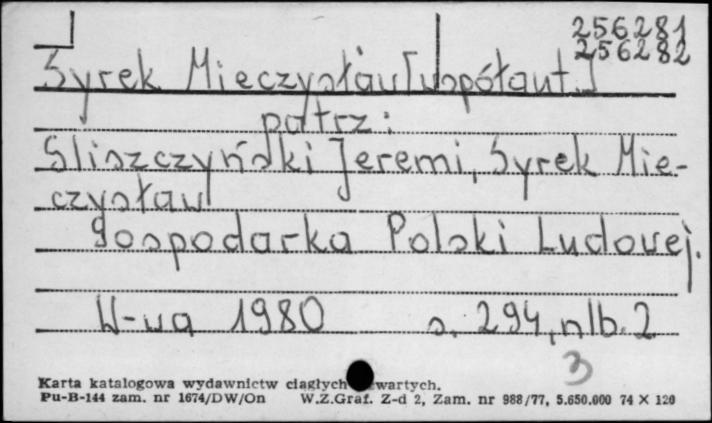 256281
256282
Syrek Mieczysław [współaut.]
patrz:
Sliszczyński Jeremi, Syrek Mie-
czysław
Gospodarka Polski Ludowej.
W-wa 1980 s. 294, nlb. 2
3
Karta katalogowa wydawnictw ciągłych wartych.
Pu-B-144 zam. nr 1674/DW/On W.Z.Graf. Z-d 2, Zam. nr 988/77, 5.650.000 74 X 120